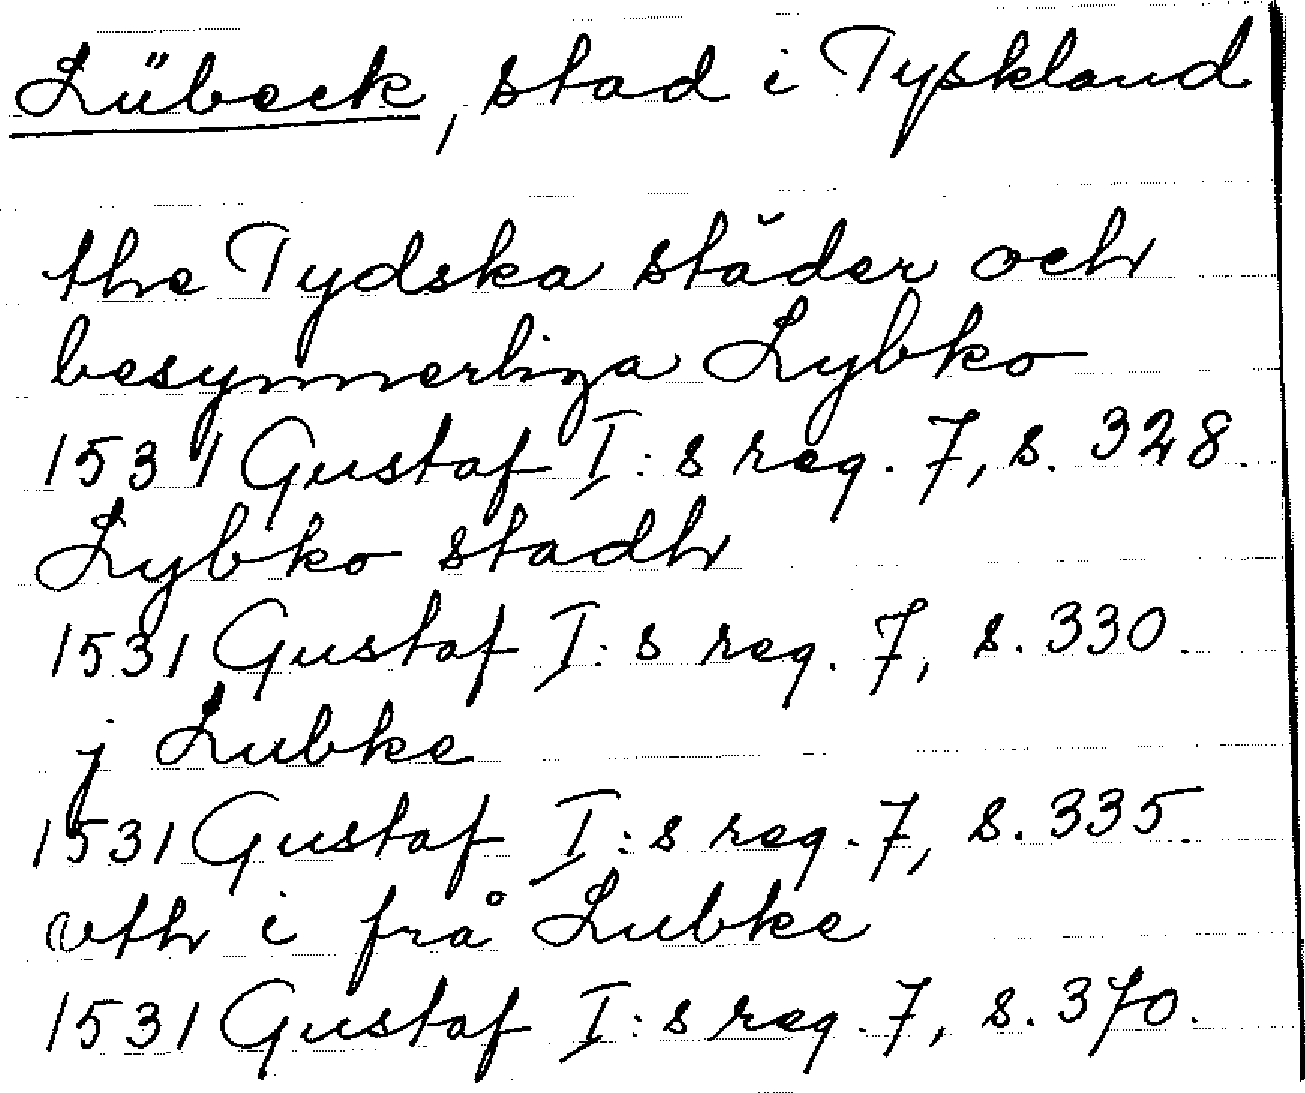 Lübeck, stad i Tyskland
the Tydska städer och
besynnerliga Lybko
1531 Gustaf I:s reg. 7, s. 328.
Lybko stadh
1531 Gustaf I:s reg. 7, s. 330.
j Lubke
1531 Gustaf I:s reg. 7, s. 335.
vth i frå Lubke
1531 Gustaf I:s reg. 7, s. 370.